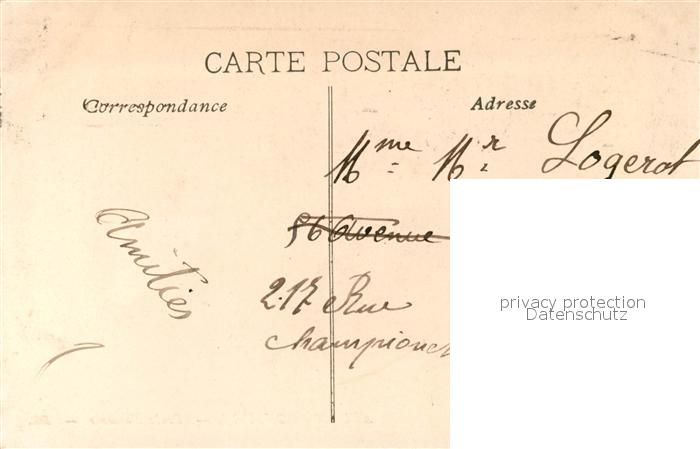 CARTE POSTALE
Correspondance
Adresse
Mme Mr Logerot
56 Avenue
Amitiés
217 Rue
Championn
privacy protection
Datenschutz